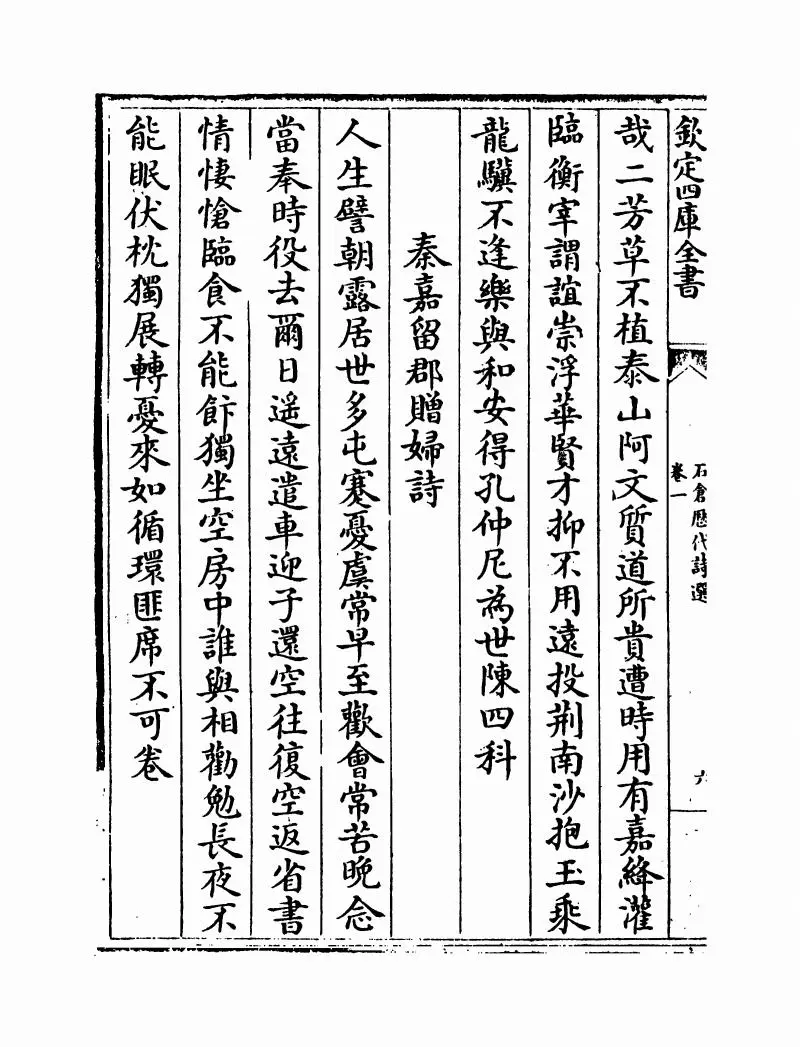 欽定四庫全書
石倉歷代詩選
卷一
六
哉二芳草不植泰山阿文質道所貴遭時用有嘉絳灌
臨衡宰謂誼崇浮華賢才抑不用遠投荆南沙抱玉乘
龍驥不逢樂與和安得孔仲尼為世陳四科
秦嘉留郡贈婦詩
人生譬朝露居世多屯蹇憂虞常早至歡會常苦晚念
當奉時役去爾日遥遠遣車迎子還空往復空返省書
情悽愴臨食不能飰獨坐空房中誰與相勸勉長夜不
能眠伏枕獨展轉憂來如循環匪席不可卷